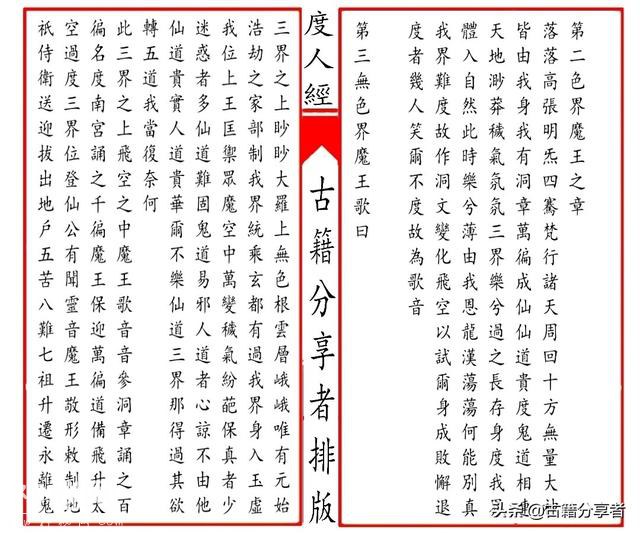 第二色界魔王之章
落落高張明炁四騫梵行諸天周回十方無量大神
皆由我身我有洞章萬徧成仙仙道貴度鬼道相連
天地渺莽穢氣氛氛三界樂兮過之長存身度我界
體入自然此時樂兮薄由我恩龍漢蕩蕩何能別真
我界難度故作洞文變化飛空以試爾身成敗懈退
度者幾人笑爾不度故為歌音
第三無色界魔王歌曰
度人經
古籍分享者排版
三界之上眇眇大羅上無色根雲層峨峨唯有元始
浩劫之家部制我界統乘玄都有過我界身入玉虛
我位上王匡禦眾魔空中萬變穢氣紛葩保真者少
迷惑者多仙道難固鬼道易邪人道者心諒不由他
仙道貴實人道貴華爾不樂仙道三界那得過其欲
轉五道我當復奈何
此三界之上飛空之中魔王歌音音參洞章誦之百
徧名度南宮誦之千徧魔王保迎萬徧道備飛升太
空過度三界位登仙公有聞靈音魔王敬形敕制地
祇侍衛送迎拔出地戶五苦八難七祖升遷永離鬼
头条@古籍分享者